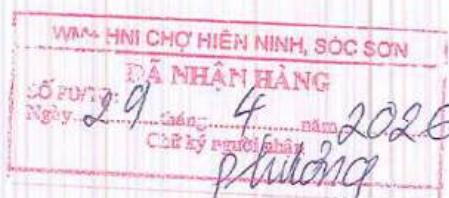 WM+ HNI CHỢ HIỀN NINH, SÓC SƠN
ĐÃ NHẬN HÀNG
SỐ PO/TO:
Ngày 29 tháng 4 năm 2026
Chữ ký người nhận
phương